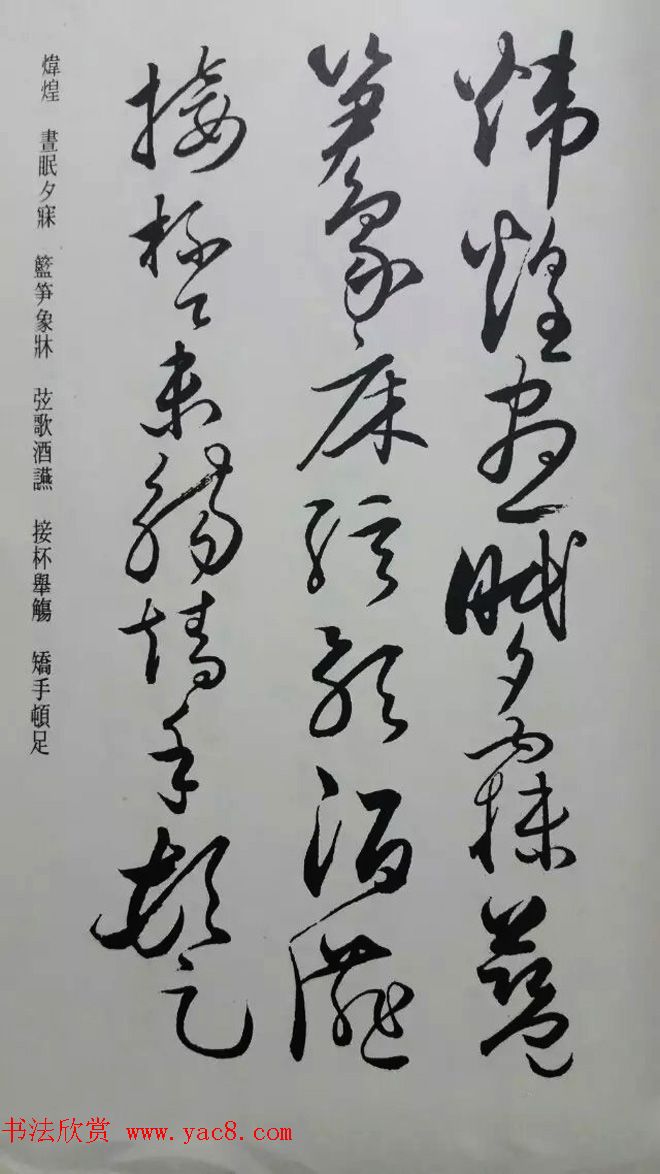 煒煌晝眠夕寐藍
笋象床弦歌酒讌
接杯舉觴矯手頓足
煒煌　晝眠夕寐　籃笋象牀　弦歌酒讌　接杯舉觴　矯手頓足
书法欣赏 www.yac8.com